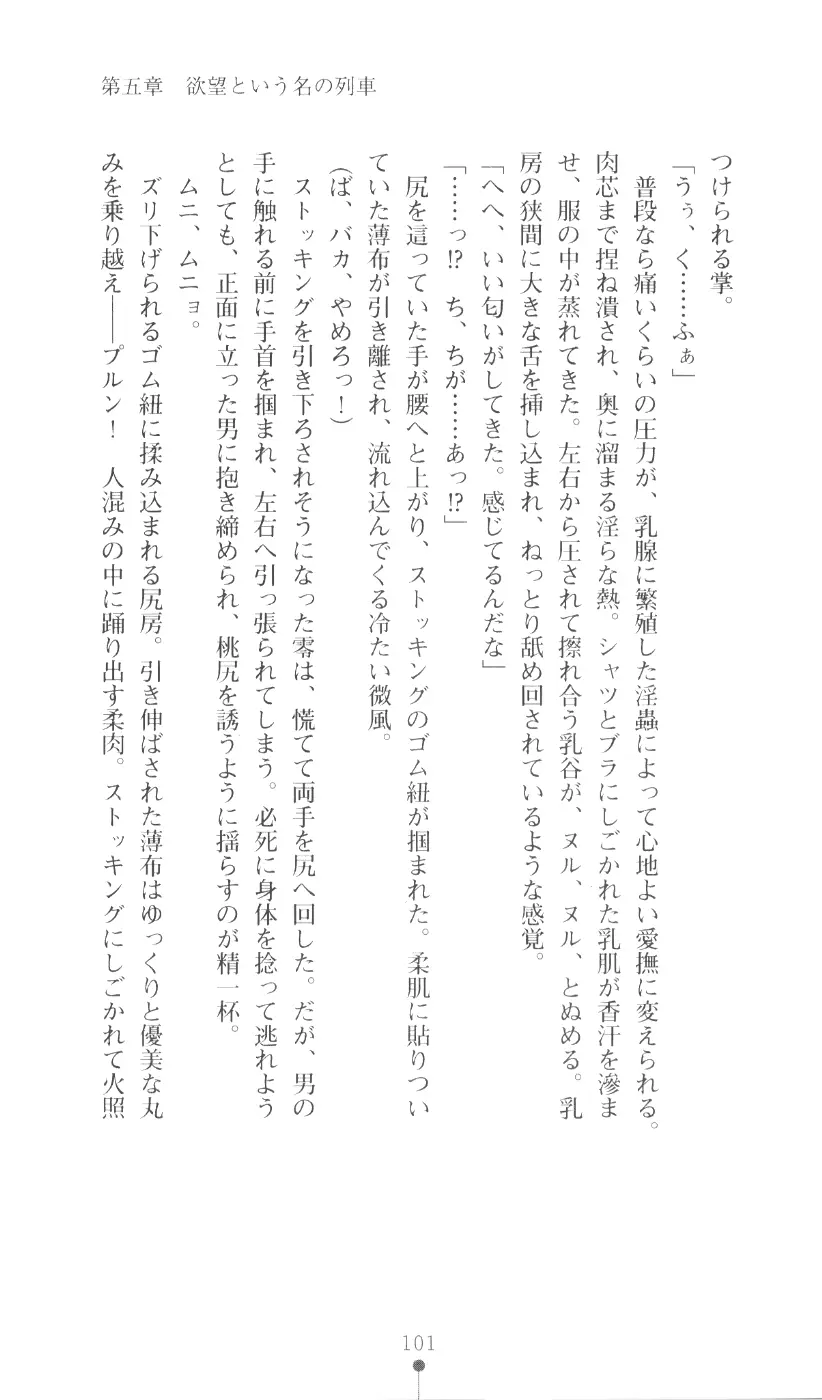 第五章　欲望という名の列車
つけられる掌。
「うぅ、く……ふぁ」
　普段なら痛いくらいの圧力が、乳腺に繁殖した淫蟲によって心地よい愛撫に変えられる。
肉芯まで捏ね潰され、奥に溜まる淫らな熱。シャツとブラにしごかれた乳肌が香汗を滲ま
せ、服の中が蒸れてきた。左右から圧されて擦れ合う乳谷が、ヌル、ヌル、とぬめる。乳
房の狭間に大きな舌を挿し込まれ、ねっとり舐め回されているような感覚。
「へへ、いい匂いがしてきた。感じてるんだな」
「……っ!?　ち、ちが……あっ!?」
　尻を這っていた手が腰へと上がり、ストッキングのゴム紐が掴まれた。柔肌に貼りつい
ていた薄布が引き離され、流れ込んでくる冷たい微風。
（ば、バカ、やめろっ！）
　ストッキングを引き下ろされそうになった零は、慌てて両手を尻へ回した。だが、男の
手に触れる前に手首を掴まれ、左右へ引っ張られてしまう。必死に身体を捻って逃れよう
としても、正面に立った男に抱き締められ、桃尻を誘うように揺らすのが精一杯。
　ムニ、ムニョ。
　ズリ下げられるゴム紐に揉み込まれる尻房。引き伸ばされた薄布はゆっくりと優美な丸
みを乗り越え――プルン！　人混みの中に踊り出す柔肉。ストッキングにしごかれて火照
101